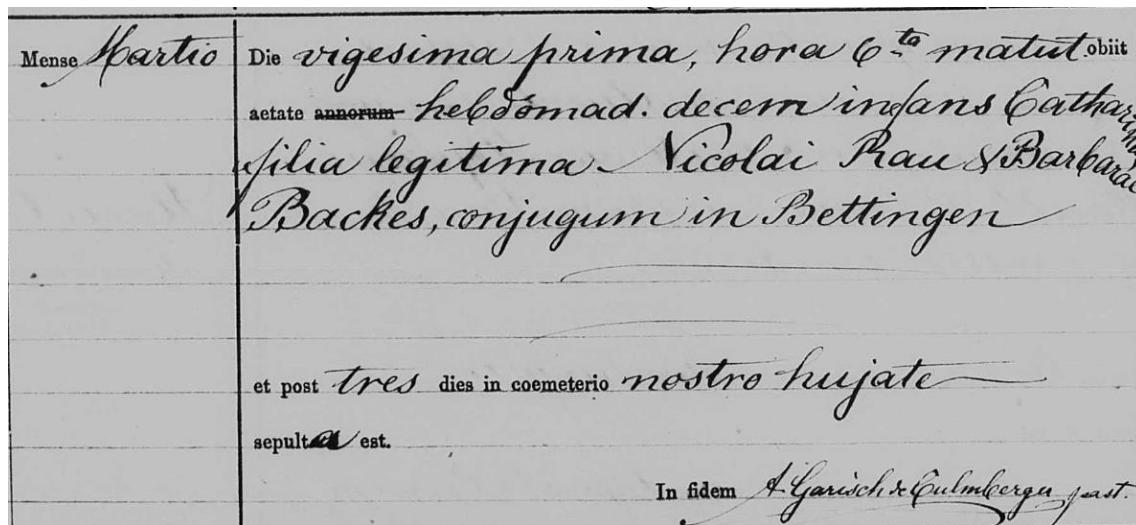 Mense Martio
Die vigesima prima, hora 6ta matut. obiit
aetate annorum hebdomad. decem infans Catharina
filia legitima Nicolai Rau & Barbarae
Backes, conjugum in Bettingen
et post tres dies in coemeterio nostro hujate
sepulta est.
In fidem A. Garisch de Culmberger past.